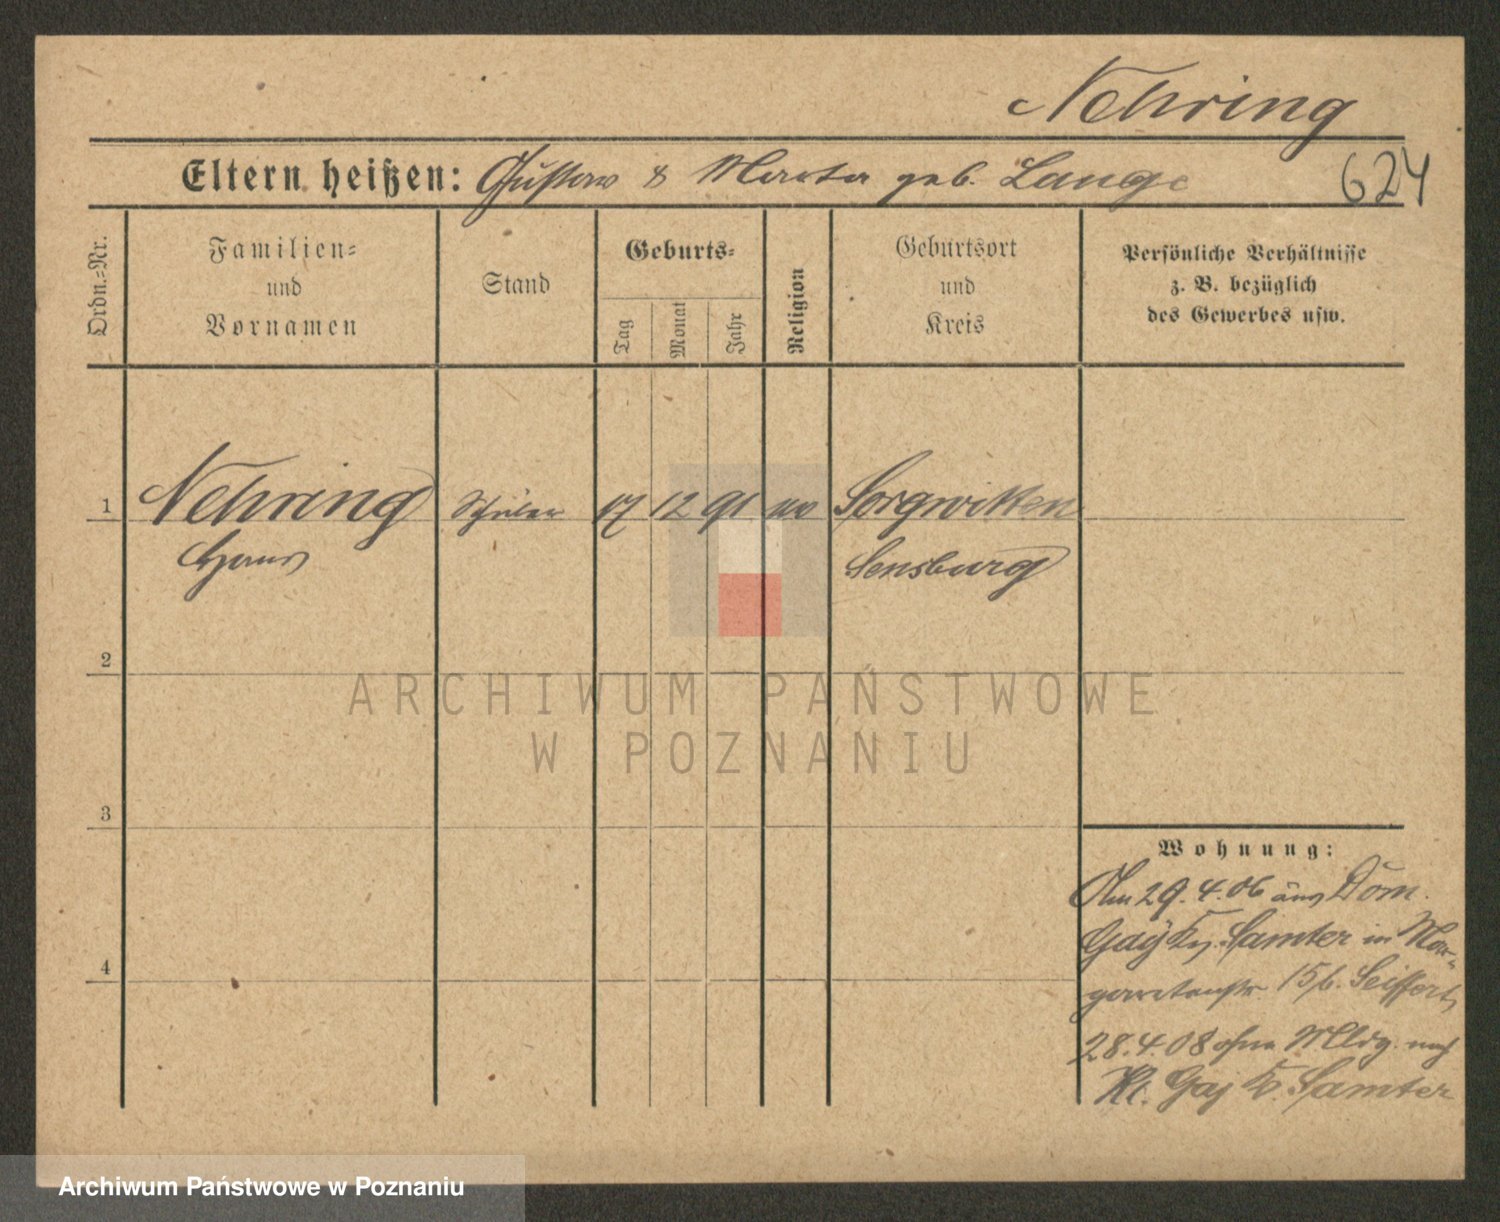 Nehring
Eltern heißen: Gustav & Marta geb. Lange
624
Ordn.-Nr.
Familien-
und
Vornamen
Stand
Geburts-
Tag
Monat
Jahr
Religion
Geburtsort
und
Kreis
Persönliche Verhältnisse
z. B. bezüglich
des Gewerbes usw.
1 Nehring Schüler 17 12 91 Sorgwitten
Hans Sensburg
2
3
4
Wohnung:
Am 29.4.06 aus Dom.
Gay Kr. Samter in Mar-
garetenstr. 15 b. Seiffert,
28.4.08 ohne Mldg. nach
Kl. Gay K. Samter
ARCHIWUM PAŃSTWOWE
W POZNANIU
Archiwum Państwowe w Poznaniu